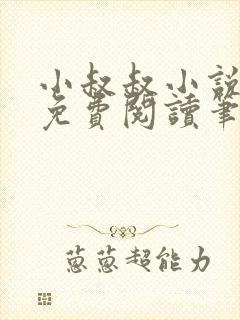 小叔叔小說
免費閱讀筆
蔥蔥超能力